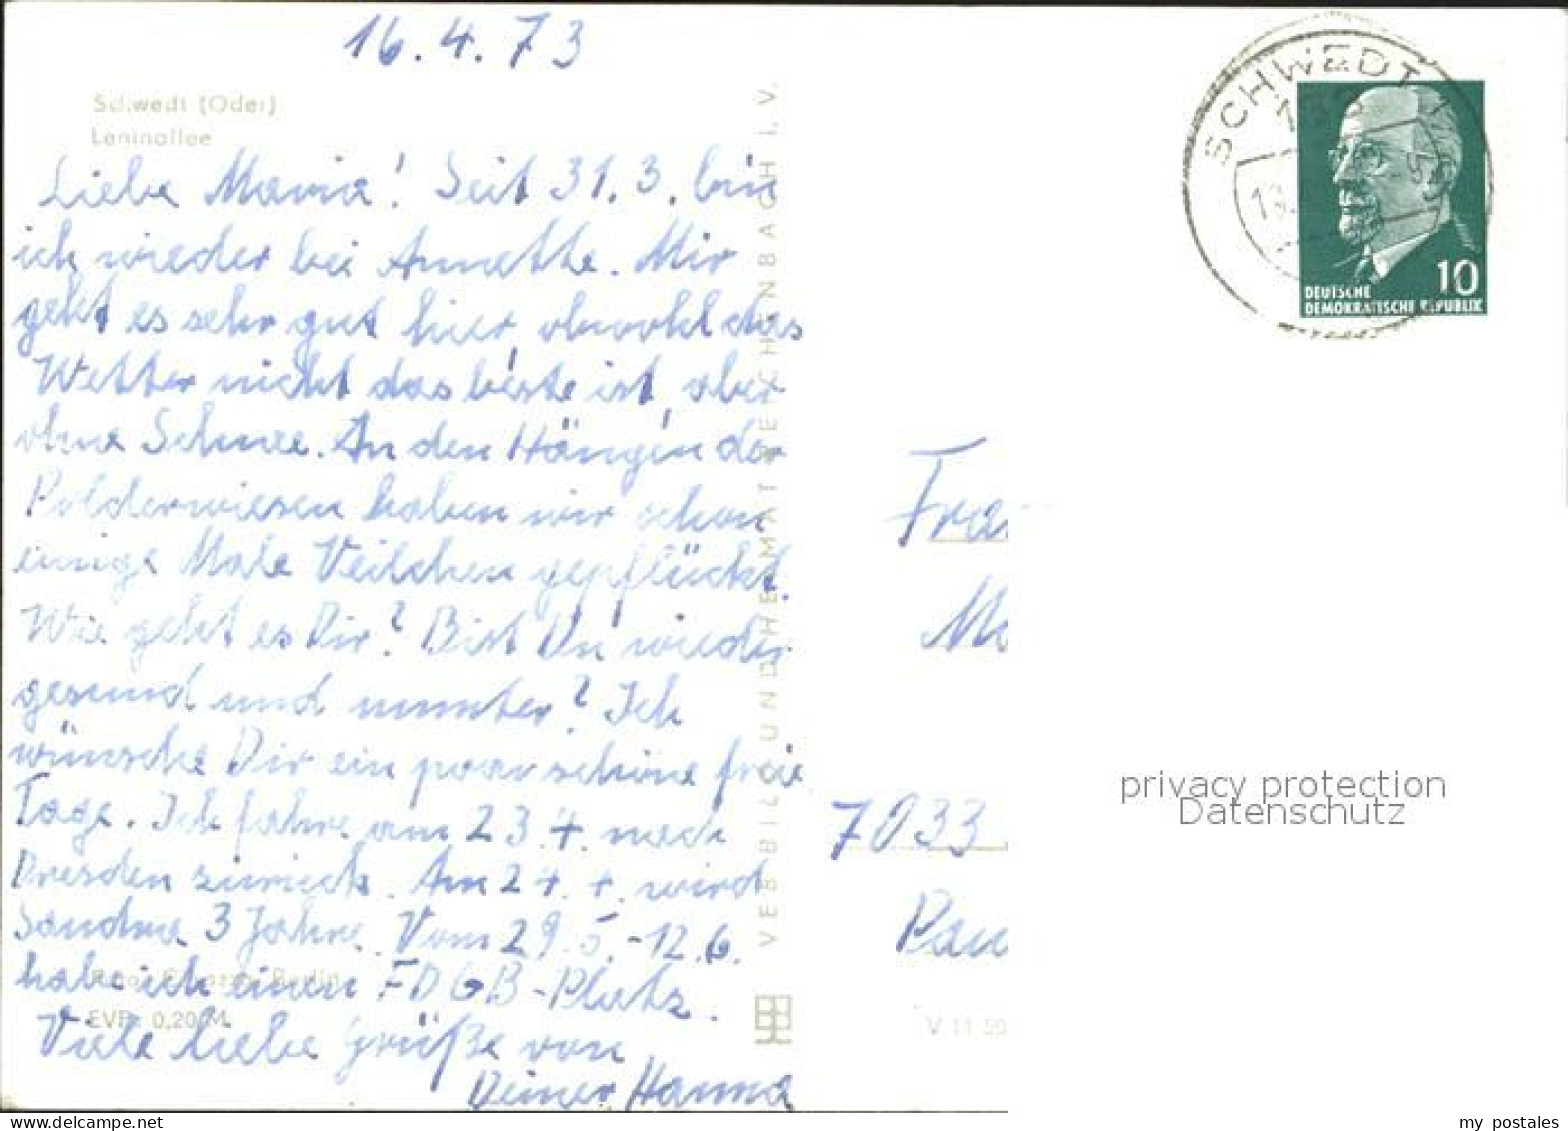 16.4.73
Schwedt (Oder)
Leninallee
Liebe Maria! Seit 31.3. bin
ich wieder bei Annette. Mir
geht es sehr gut hier, obwohl das
Wetter nicht das beste ist, aber
ohne Schnee. An den Hängen der
Polderwiesen haben wir schon
einige Male Veilchen gepflückt.
Wie geht es Dir? Bist Du wieder
gesund und munter? Ich
wünsche Dir ein paar schöne freie
Tage. Ich fahre am 23.4. nach
Dresden zurück. Am 24.4. wird
Sandra 3 Jahre. Vom 29.5.-12.6.
habe ich einen FDGB-Platz.
Viele liebe Grüße von
Deiner Hanna
Berlin
EVP: 0,20 M
VEB BILD UND HEIMAT REICHENBACH I. V.
V 11 50
SCHWEDT 1
10
DEUTSCHE
DEMOKRATISCHE REPUBLIK
7033
privacy protection
Datenschutz
my postales